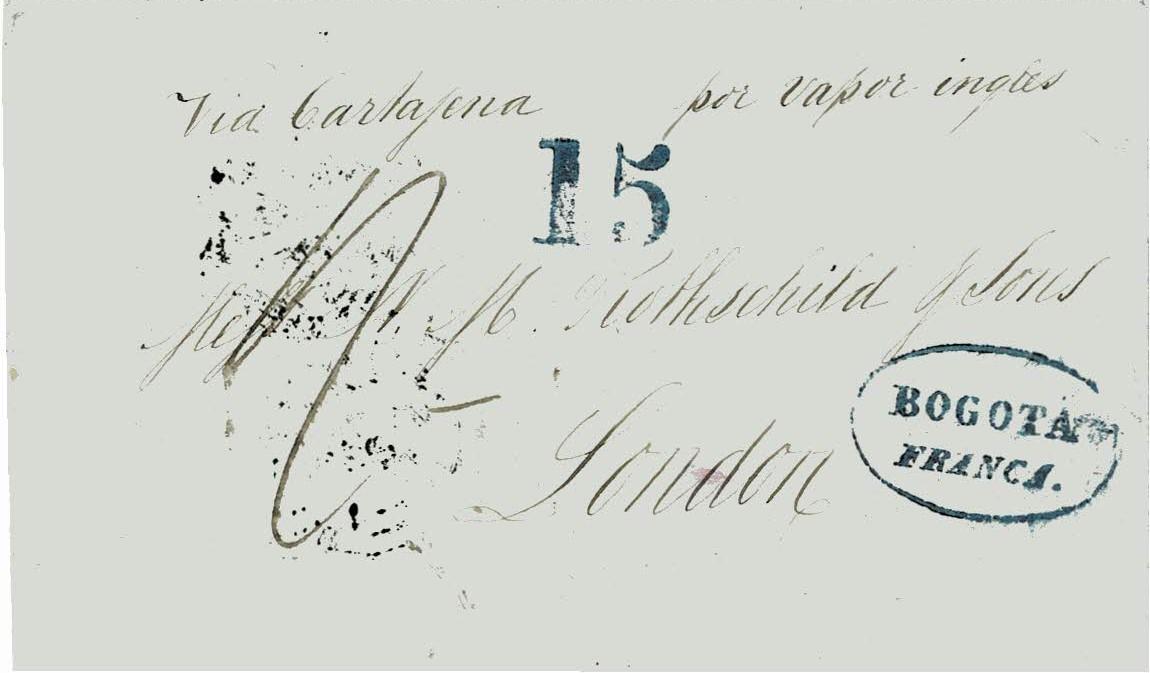 Via Cartajena por vapor ingles
15
Mess N. M. Rothschild y Sons
London
BOGOTA
FRANCA.